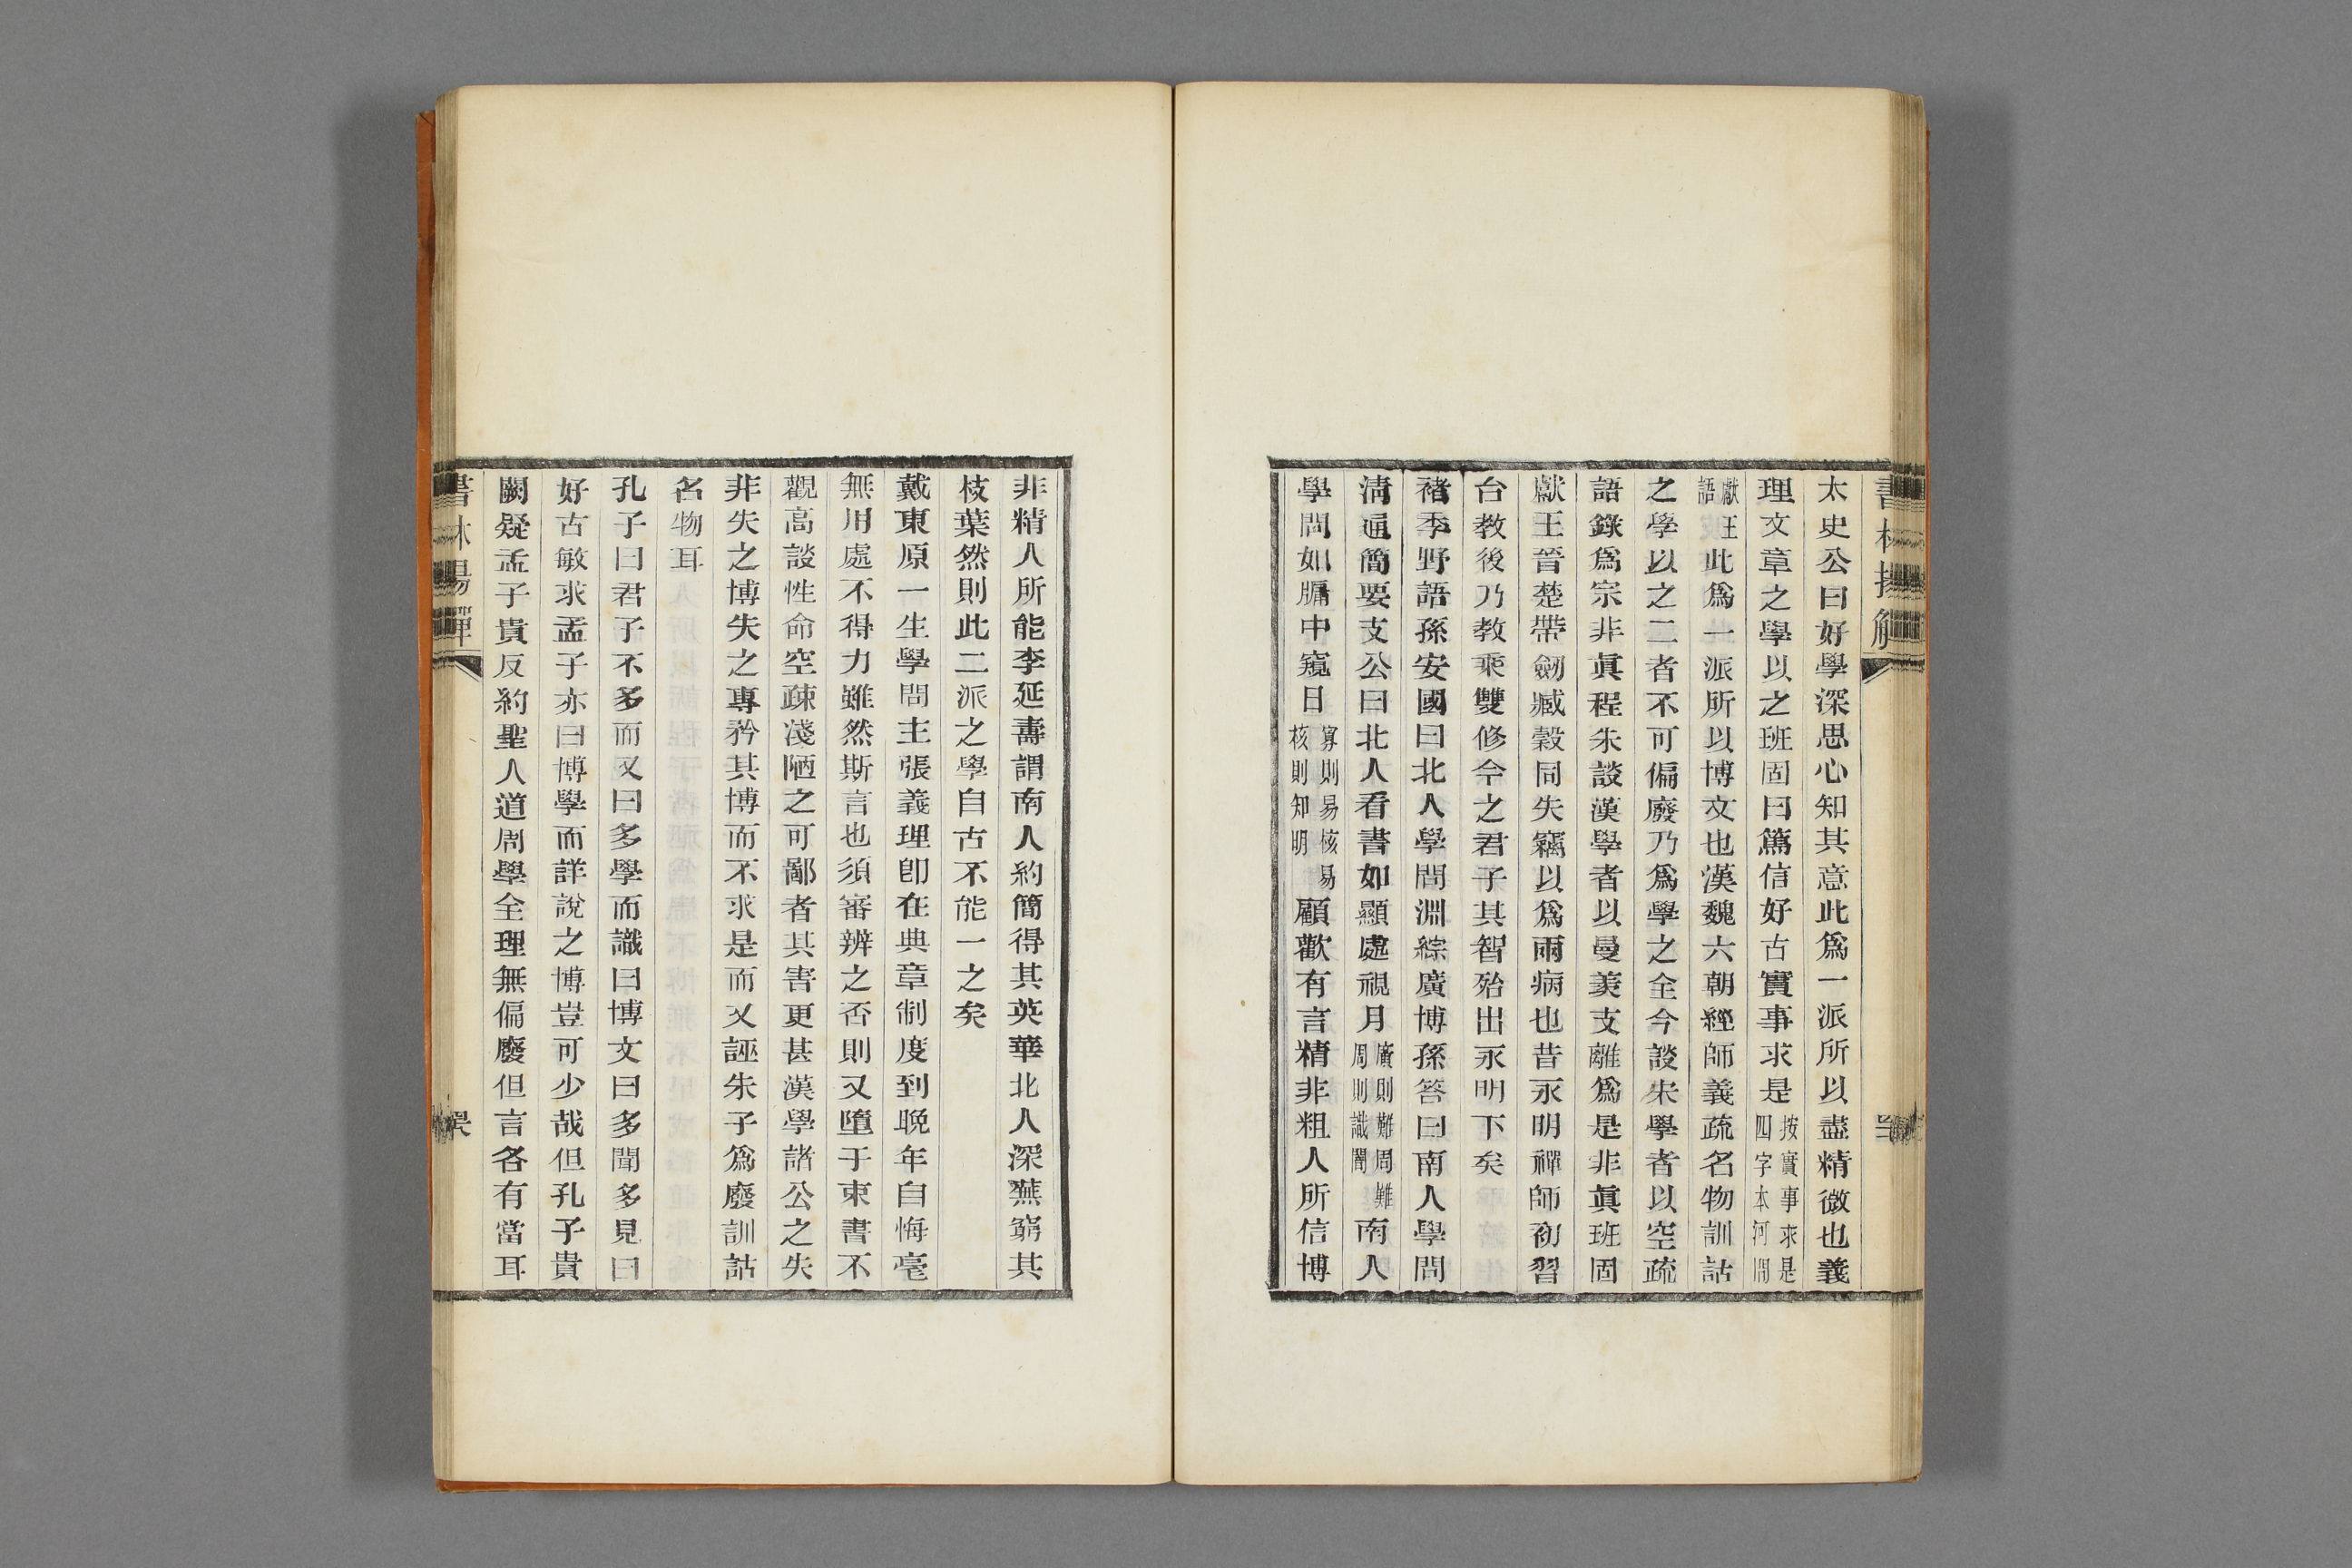 太史公曰好學深思心知其意此爲一派所以盡精微也義
理文章之學以之班固曰篤信好古實事求是按實事求是四字本河間
獻王語此爲一派所以博文也漢魏六朝經師義疏名物訓詁
之學以之二者不可偏廢乃爲學之全今談朱學者以空疏
語錄爲宗非眞程朱談漢學者以曼羨支離爲是非眞班固
獻王晉楚帶劒臧穀同失竊以爲兩病也昔永明禪師初習
台教後乃教乘雙修今之君子其智殆出永明下矣
褚季野語孫安國曰北人學問淵綜廣博孫答曰南人學問
淸通簡要支公曰北人看書如顯處視月廣則難周難周則識闇南人
學問如牖中窺日寡則易核易核則知明顧歡有言精非粗人所信博
非精人所能李延壽謂南人約簡得其英華北人深蕪窮其
枝葉然則此二派之學自古不能一之矣
戴東原一生學問主張義理卽在典章制度到晚年自悔毫
無用處不得力雖然斯言也須審辨之否則又墮于束書不
觀高談性命空疎淺陋之可鄙者其害更甚漢學諸公之失
非失之博失之專矜其博而不求是而又誣朱子爲廢訓詁
名物耳
孔子曰君子不多而又曰多學而識曰博文曰多聞多見曰
好古敏求孟子亦曰博學而詳說之博豈可少哉但孔子貴
闕疑孟子貴反約聖人道周學全理無偏廢但言各有當耳
書林揚觶